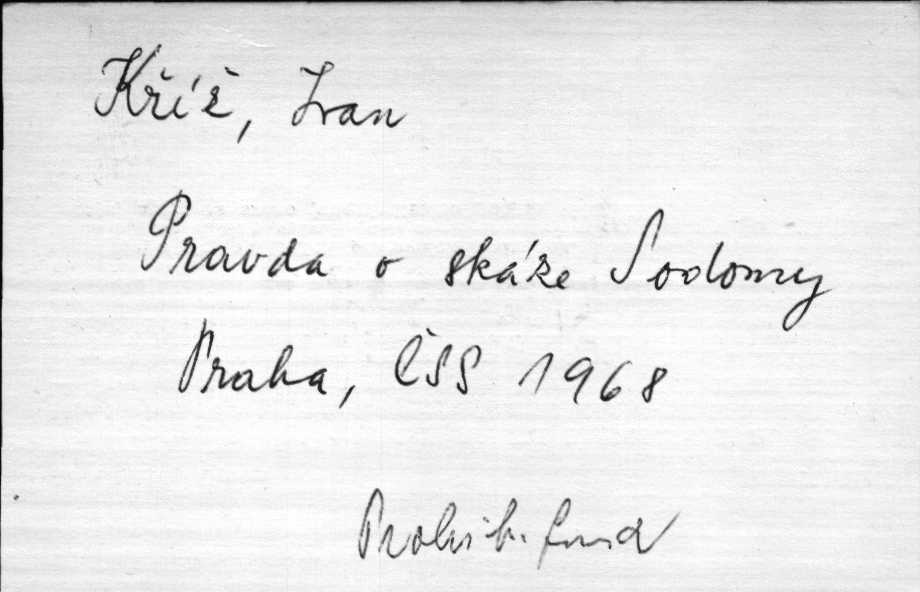 Kříž, Ivan
Pravda o skáze Sodomy
Praha, ČSS 1968
Prohib. fond